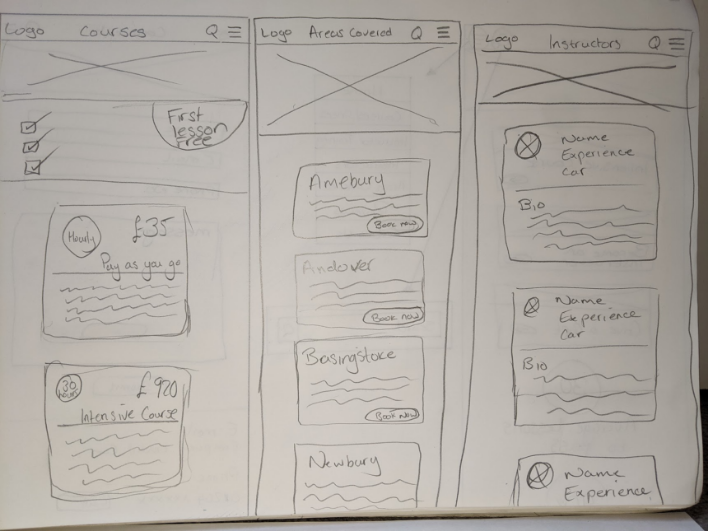 Logo Courses Q
First
lesson
Free
Hourly £35
Pay as you go
30
hours
£920
Intensive Course
Logo Areas Covered Q
Amebury
Book now
Andover
Book now
Basingstoke
Book now
Newbury
Logo Instructors Q
Name
Experience
Car
Bio
Name
Experience
Car
Bio
Name
Experience